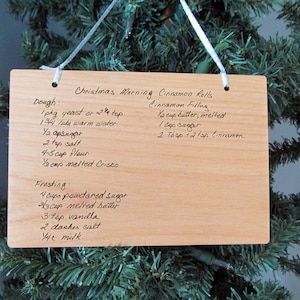 Christmas Morning Cinnamon Rolls
Dough:
1 pkg yeast or 2 1/4 tsp
warm water
sugar
2 tsp salt
4-5 cup flour
cup melted Crisco
Cinnamon Filling
cup butter, melted
1 cup sugar
1 Tbsp + 2 tsp Cinnamon
Frosting
4 cups powdered sugar
cup melted butter
3 tsp vanilla
2 dashes salt
milk